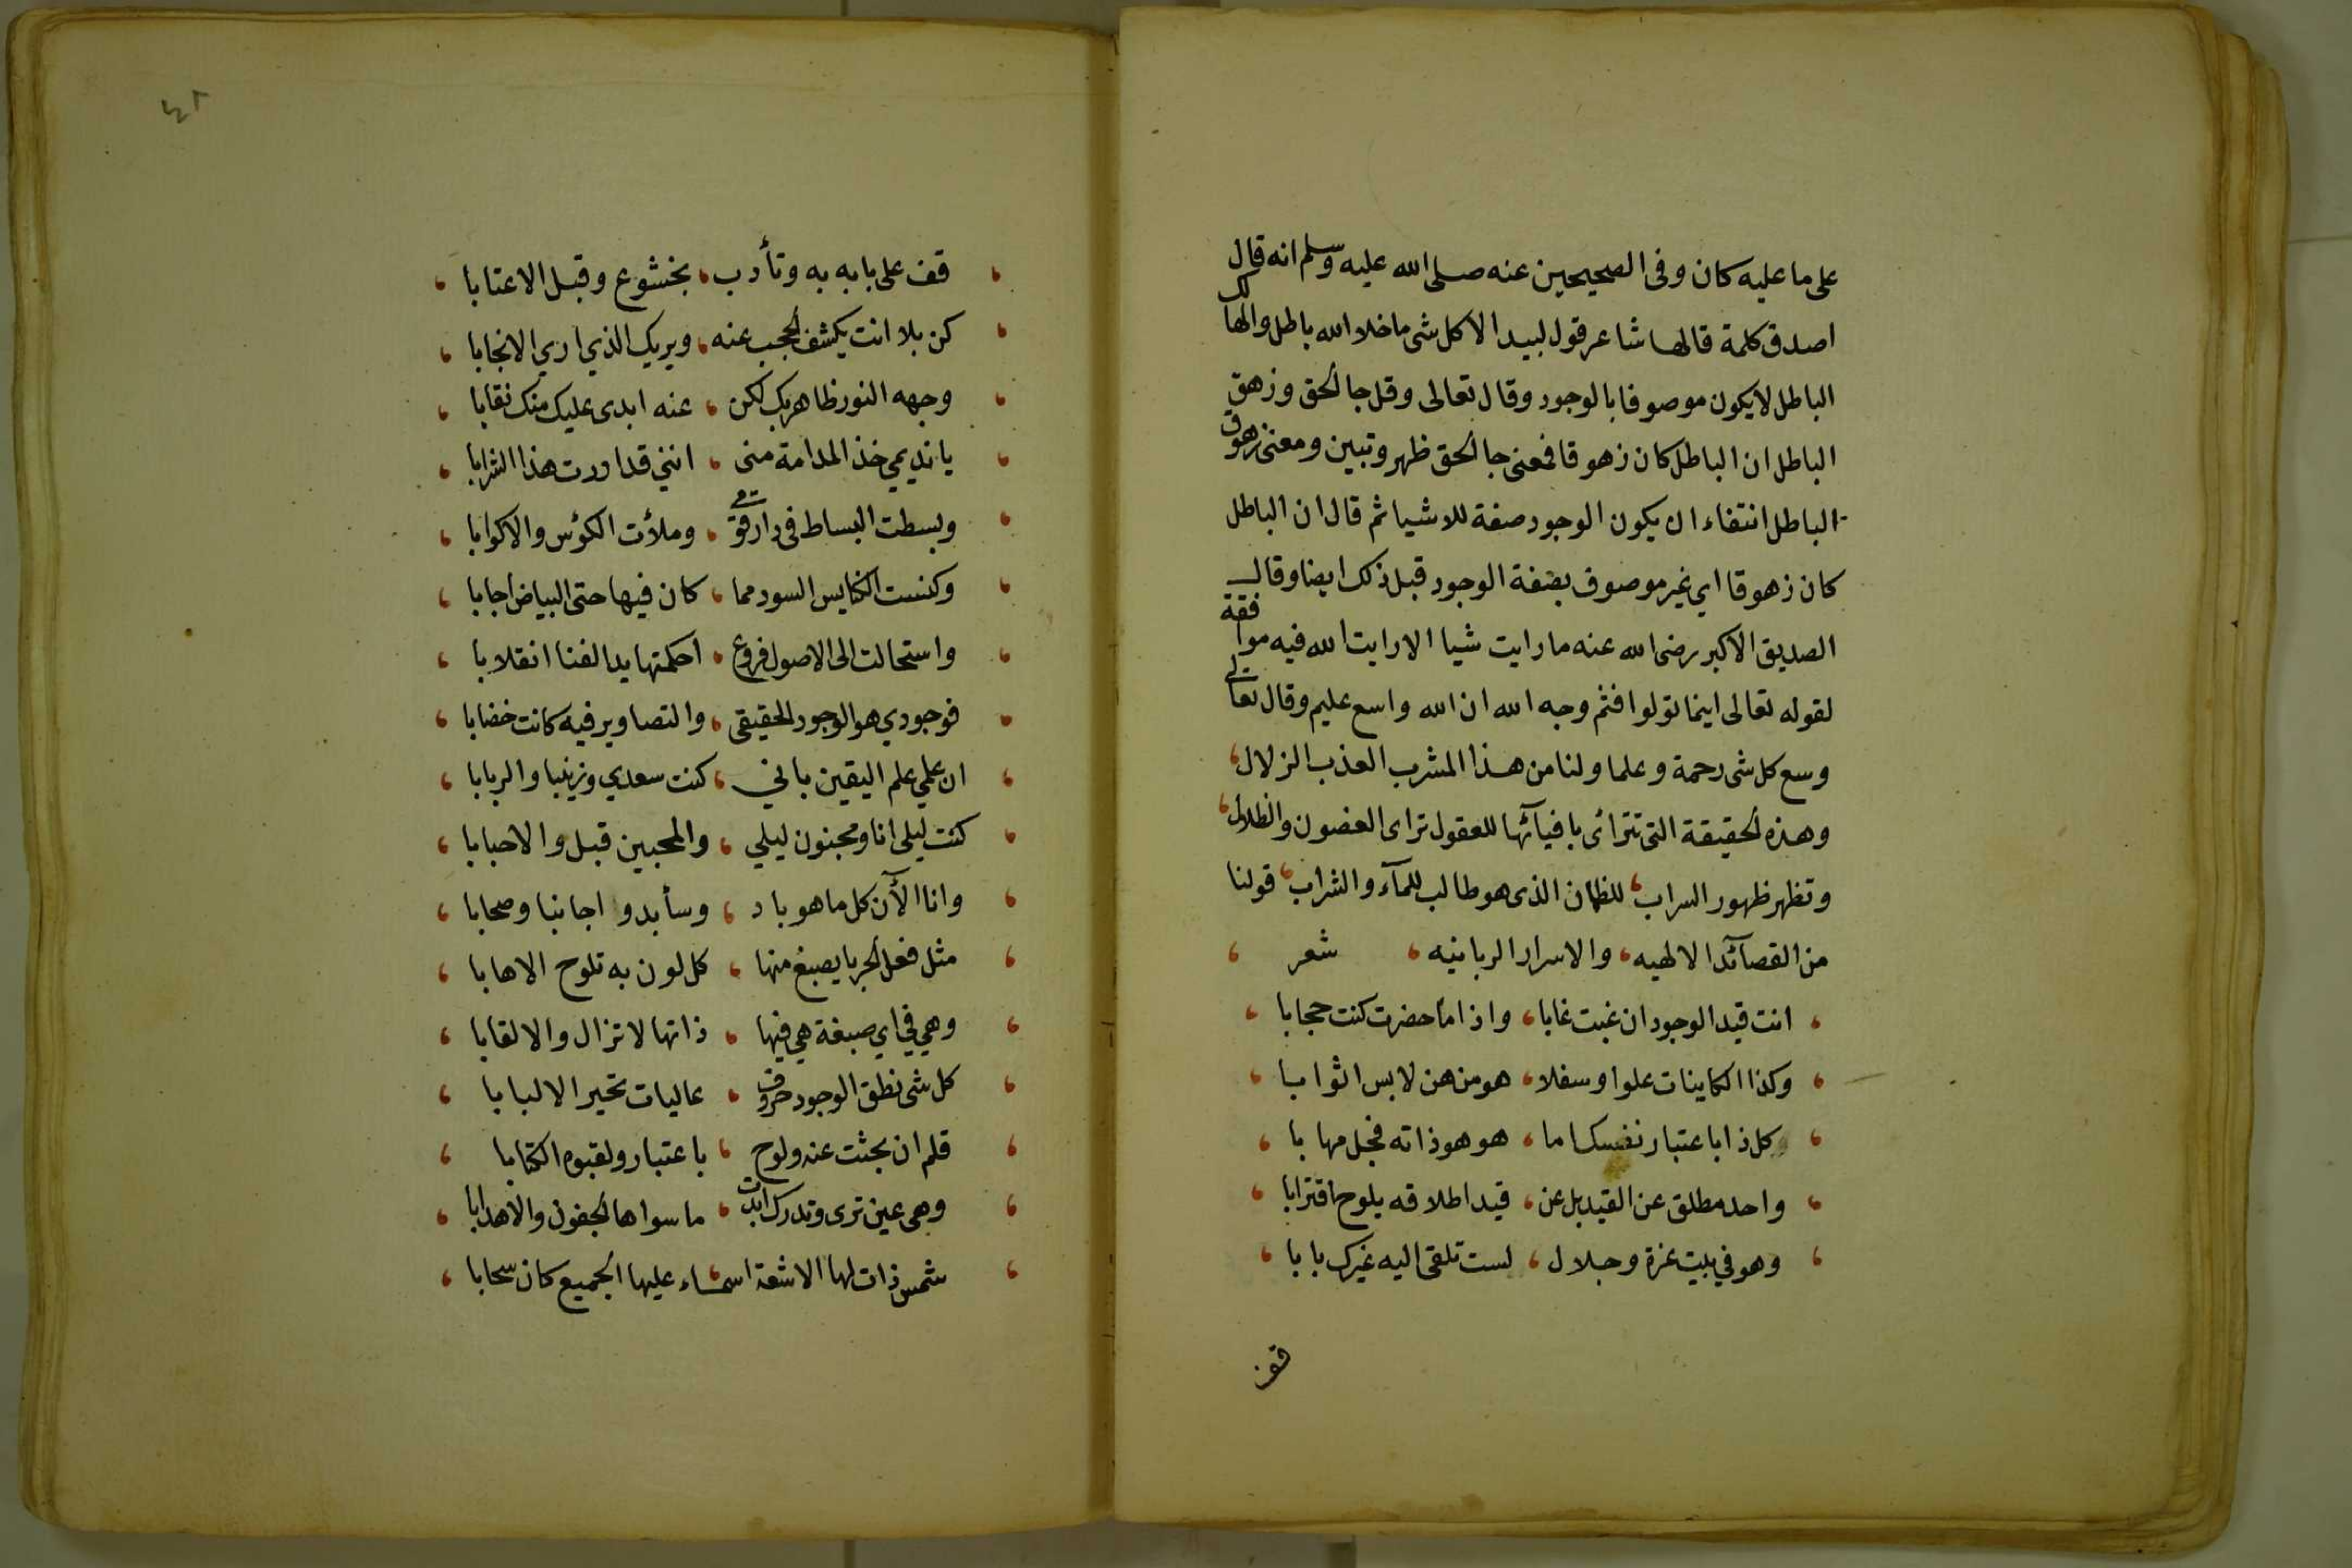 على ما عليه كان وفى الصحيحين عنه صلى الله عليه وسلم انه قال
اصدق كلمة قالها شاعر قول لبيد الا كل شى ما خلا الله باطل والهالك
الباطل لا يكون موصوفا بالوجود وقال تعالى وقل جا الحق وزهق
الباطل ان الباطل كان زهوقا فمعنى جا الحق ظهر وتبين ومعنى زهوق
الباطل انتفاء ان يكون الوجود صفة للاشيا ثم قال ان الباطل
كان زهوقا اي غير موصوف بصفة الوجود قبل ذلك ايضا وقال
الصديق الاكبر رضى الله عنه ما رايت شيا الا رايت الله فيه موافقة
لقوله تعالى اينما تولوا فثم وجه الله ان الله واسع عليم وقال تعالى
وسع كل شى رحمة وعلما ولنا من هذا المشرب العذب الزلال،
وهذه الحقيقة التى تترائى بافيآئها للعقول تراى الغصون والظلال،
وتظهر ظهور السراب، للظمان الذى هو طالب للمآء والشراب، قولنا
من القصآئد الالهيه، والاسرار الربانيه، شعر ،
، انت قيد الوجود ان غبت غابا، واذا ما حضرت كنت حجابا ،
، وكذا الكاينات علوا وسفلا، هو من هن لابس اثوابا ،
، وكل ذا باعتبار نفسك اما، هو هو ذاته فجل مهابا ،
، واحد مطلق عن القيد بل عن، قيد اطلاقه يلوح اقترابا ،
، وهو في بيت عزة وجلال، لست تلقى اليه غيرك بابا ،
قف
٤٨
، قف على بابه به وتأدب، بخشوع وقبل الاعتابا ،
، كن بلا انت يكشف الحجب عنه، ويريك الذي اري الانجابا ،
، وجهه النور ظاهر بك لكن، عنه ابدى عليك منك نقابا ،
، يا نديمي خذ المدامة منى، اننى قد ادرت هذا الشرابا ،
، وبسطت البساط فى دار قومى، وملأت الكؤس والاكوابا ،
، وكنست الكنايس السود مما، كان فيها حتى البياض اجابا ،
، واستحالت الى الاصول فروع، احكمتها يد الفنا انقلابا ،
، فوجودي هو الوجود الحقيقى، والتصاوير فيه كانت خضابا ،
، ان علمي علم اليقين بانى، كنت سعدي وزينبا والربابا ،
، كنت ليلى انا ومجنون ليلي، والمحبين قبل والاحبابا ،
، وانا الآن كل ما هو باد، وسأبدو اجانبا وصحابا ،
، مثل فعل الحربا يصبغ منها، كل لون به تلوح الاهابا ،
، وهي في اي صبغة هي فيها، ذاتها لا تزال والالقابا ،
، كل شى نطق الوجود حروف، عاليات تحير الالبابا ،
، قلم ان بحثت عنه ولوح، باعتبار ولقبوه الكتابا ،
، وهى عين ترى وتدرك ابدت، ما سواها الجفون والاهدابا ،
، شمس ذات لها الاشعة اسماء، عليها الجميع كان سحابا ،